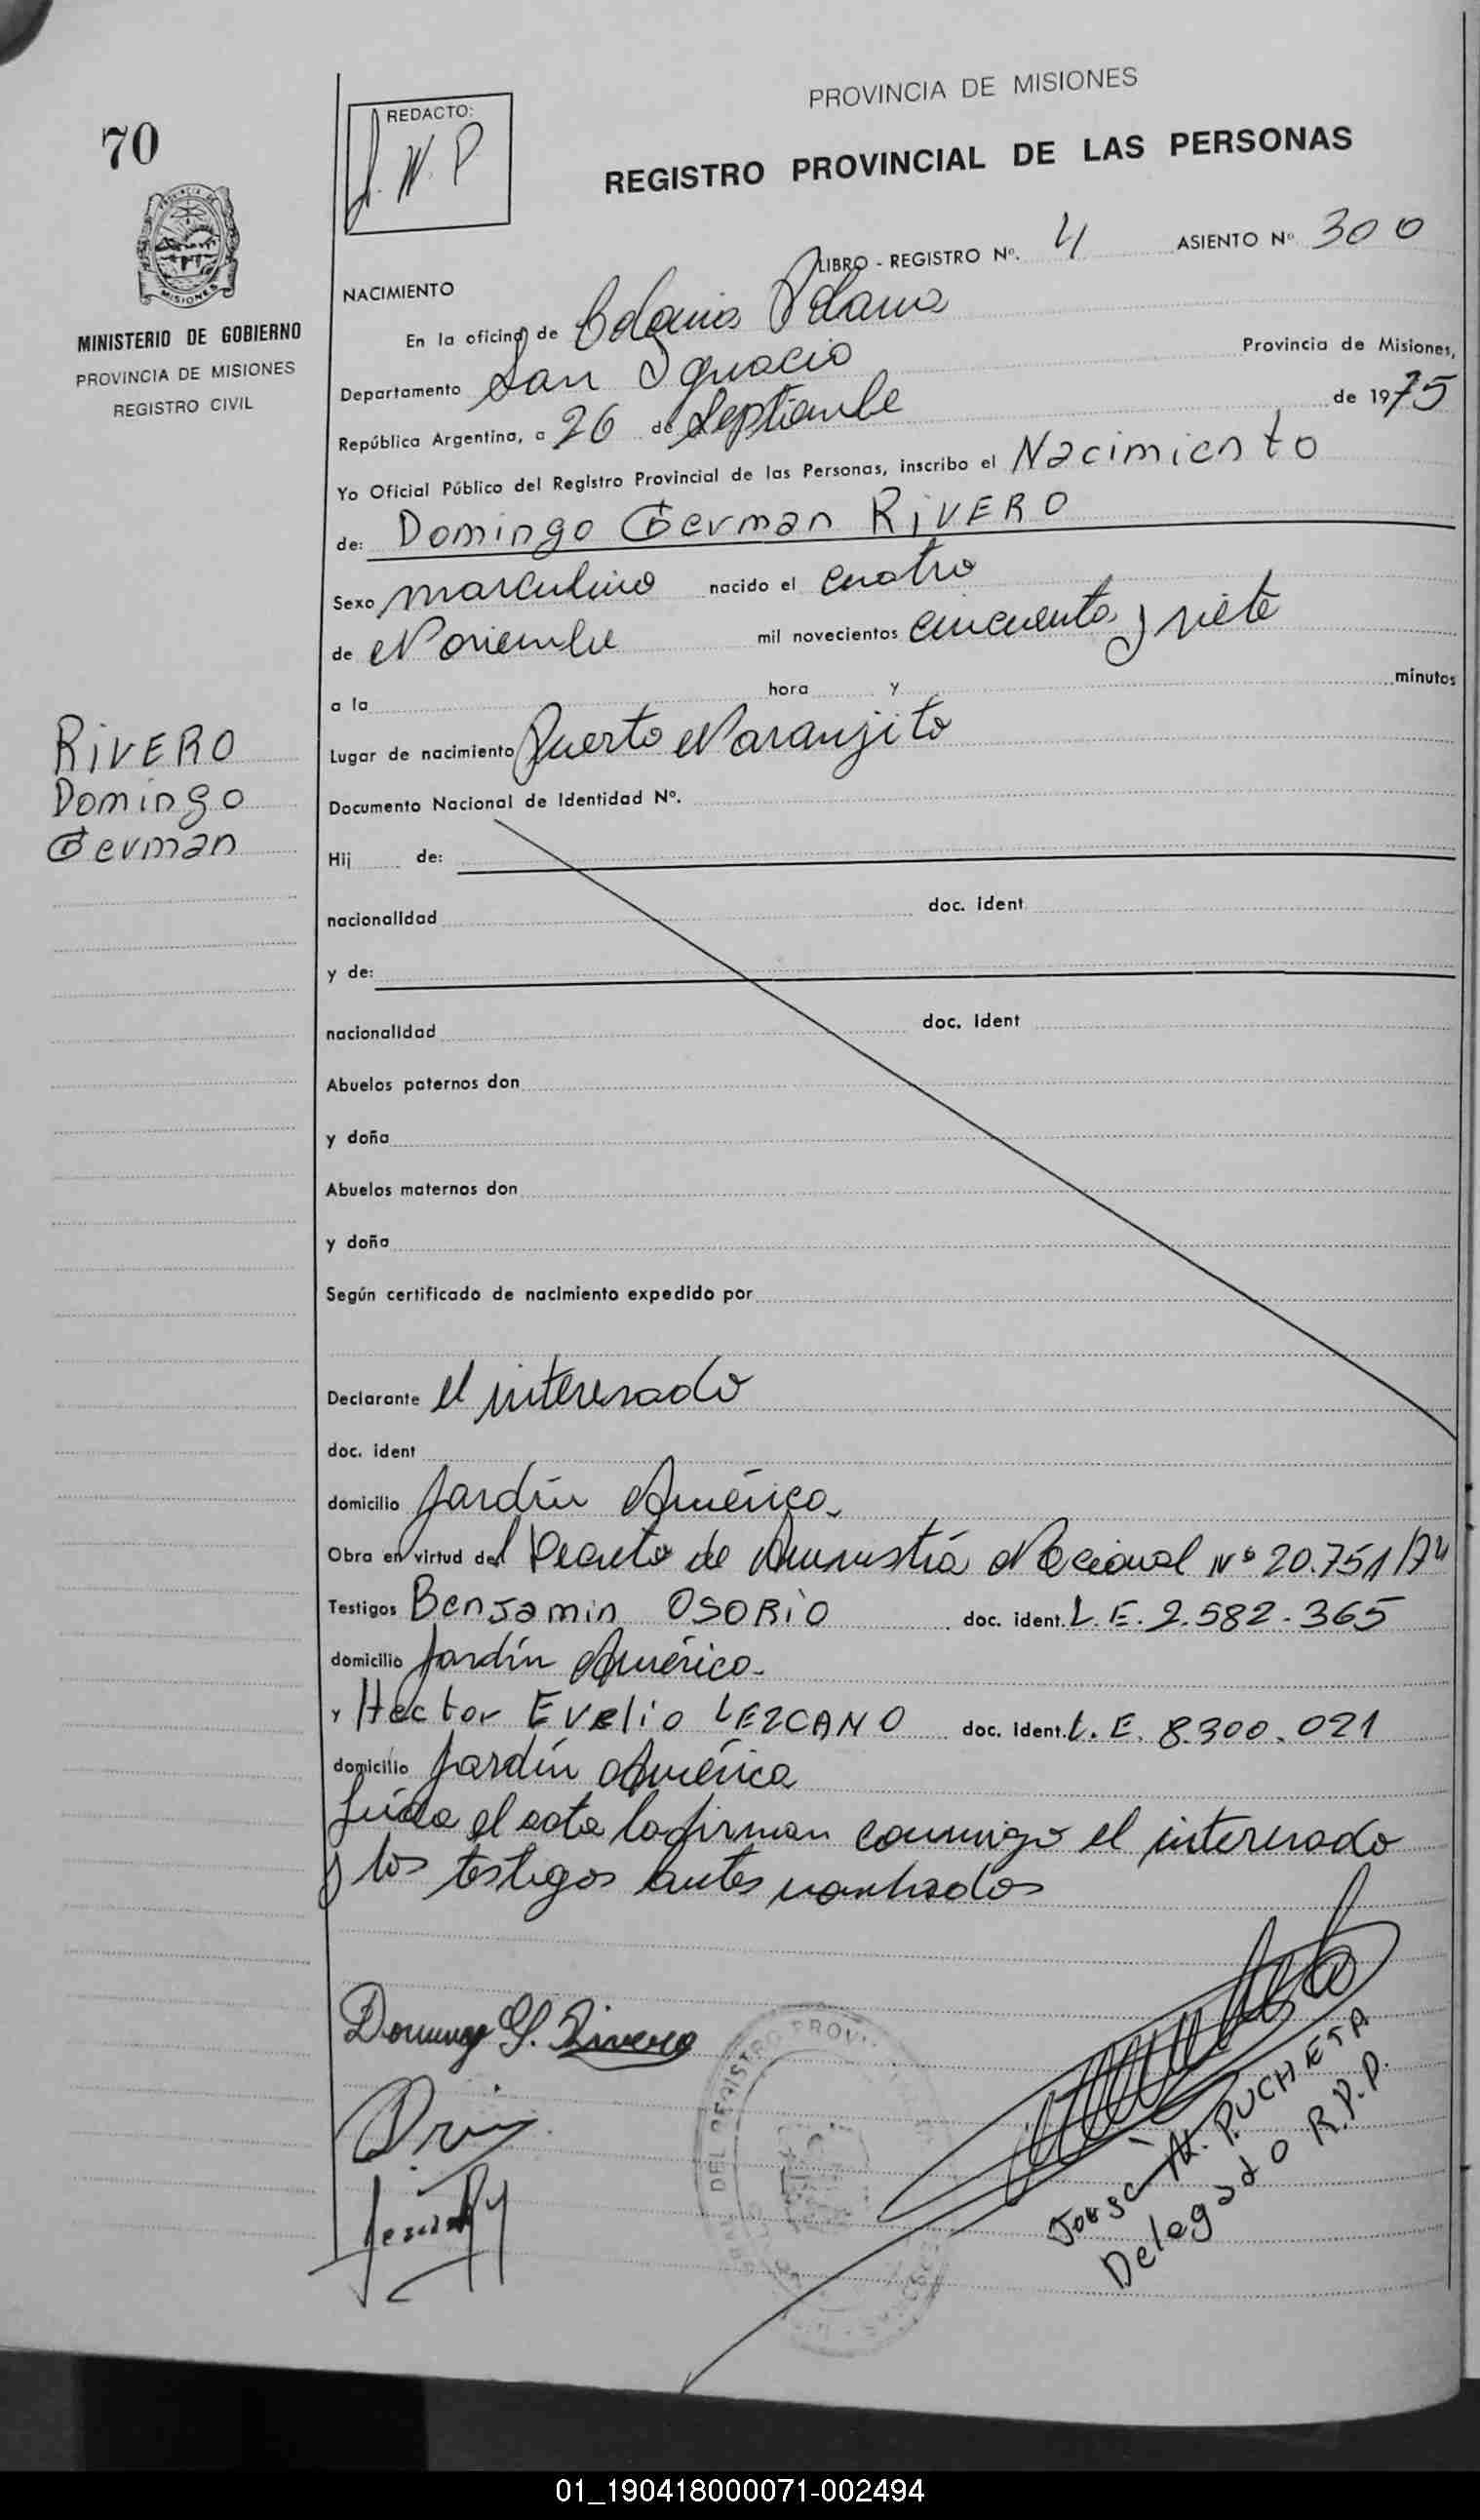 PROVINCIA DE MISIONES
70
REDACTO:
J. N. P.
REGISTRO PROVINCIAL DE LAS PERSONAS
LIBRO - REGISTRO Nº. 4 ASIENTO Nº 300
NACIMIENTO
MISIONES
MINISTERIO DE GOBIERNO
PROVINCIA DE MISIONES
REGISTRO CIVIL
En la oficina de Colonia
Departamento San Ignacio Provincia de Misiones,
República Argentina, a 26 de Septiembre de 1975
Yo Oficial Público del Registro Provincial de las Personas, inscribo el Nacimiento
de: Domingo German RIVERO
Sexo masculino nacido el cuatro
de Noviembre mil novecientos cincuenta y siete
a la hora y minutos
Lugar de nacimiento Puerto Naranjito
RIVERO
Domingo
German
Documento Nacional de Identidad Nº.
Hij de:
nacionalidad doc. ident
y de:
nacionalidad doc. ident
Abuelos paternos don
y doña
Abuelos maternos don
y doña
Según certificado de nacimiento expedido por
Declarante el interesado
doc. ident
domicilio Jardín América
Obra en virtud del Decreto de Amnistía Nacional Nº 20.751/74
Testigos Benjamin OSORIO doc. ident. L. E. 2.582.365
domicilio Jardín América
y Hector Evelio LEZCANO doc. ident. L. E. 8.300.021
domicilio Jardín América
Leída el acta la firman conmigo el interesado
y los testigos antes nombrados
Domingo G. Rivero
DEL REGISTRO PROV
Jose N. PUCHETA
Delegado R.P.P.
01_190418000071-002494